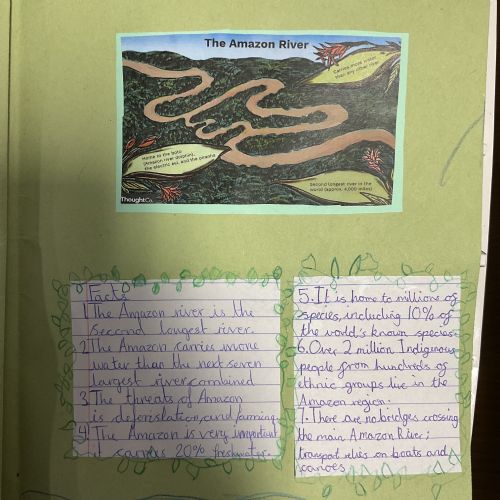 The Amazon River
Carries more water
than any other river
Home to the boto
(Amazon river dolphin),
the electric eel, and the piranha
Second longest river in the
world (approx. 4,000 miles)
ThoughtCo.
Facts
1 The Amazon river is the
second longest river.
2 The Amazon carries more
water than the next seven
largest river combined
3 The threats of Amazon
is deforestation, and farming
4 The Amazon is very important
it carries 20% freshwater.
5. It is home to millions of
species, including 10% of
the world's known species.
6. Over 2 million Indigenous
people from hundreds of
ethnic groups live in the
Amazon region.
7. There are no bridges crossing
the main Amazon River;
transport relies on boats and
canoes